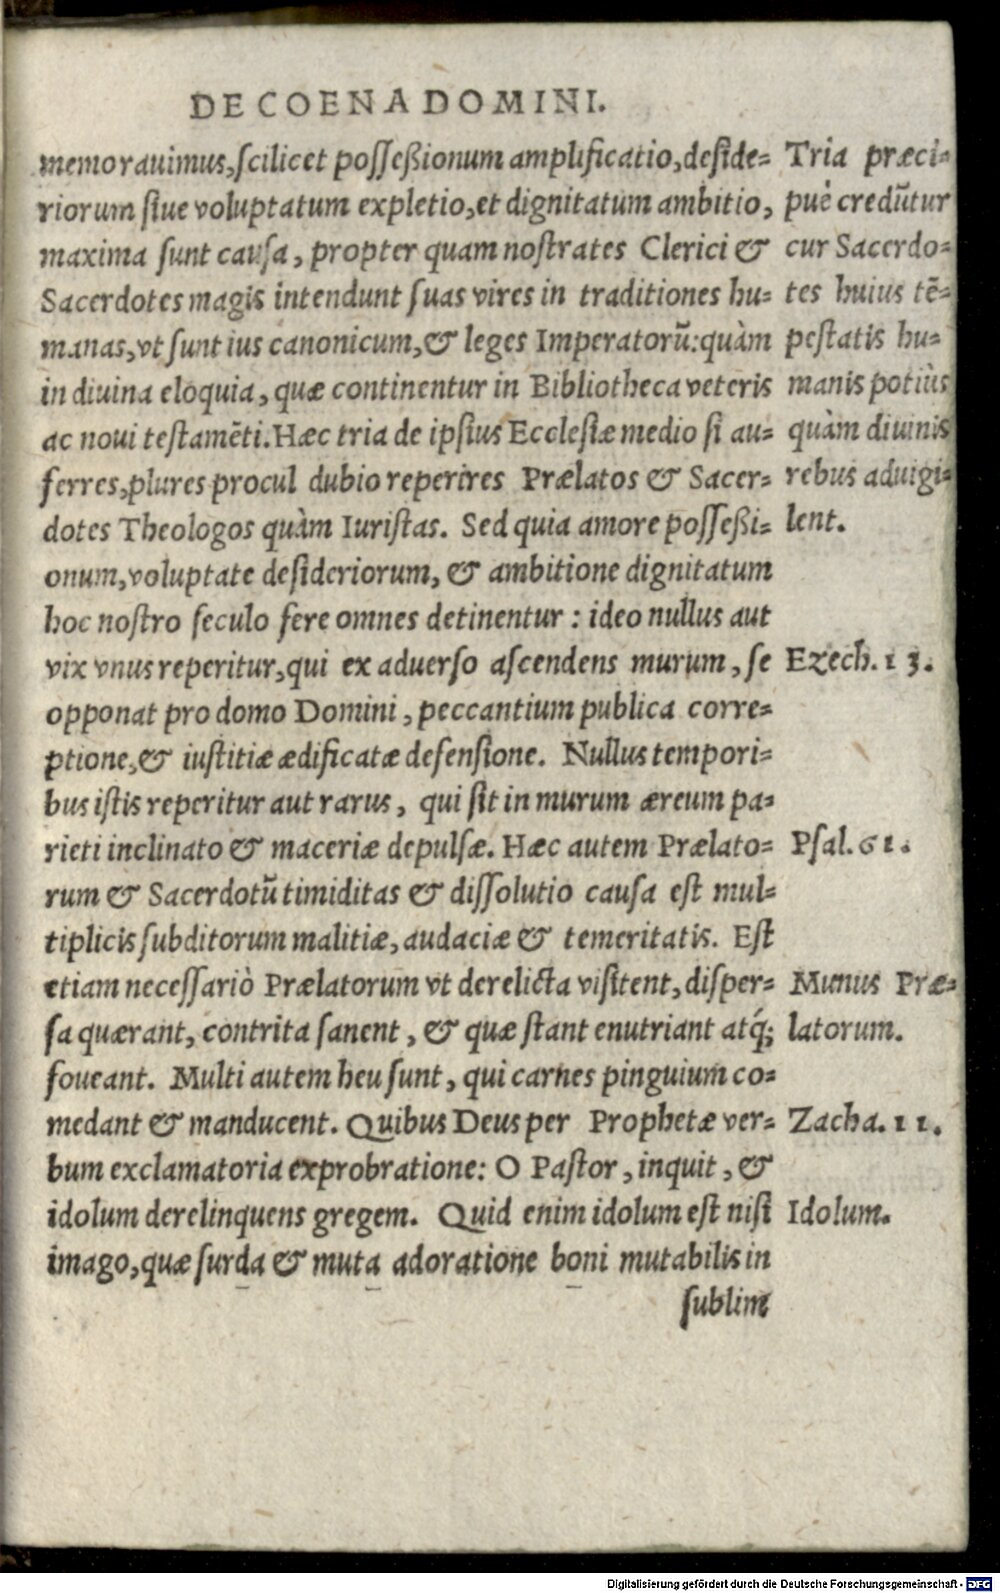 DE COENA DOMINI.
memorauimus, scilicet possessionum amplificatio, deside-
riorum siue voluptatum expletio, et dignitatum ambitio,
maxima sunt causa, propter quam nostrates Clerici &
Sacerdotes magis intendunt suas vires in traditiones hu-
manas, vt sunt ius canonicum, & leges Imperatorũ: quàm
in diuina eloquia, quæ continentur in Bibliotheca veteris
ac noui testamẽti. Hæc tria de ipsius Ecclesiæ medio si au-
ferres, plures procul dubio reperires Prælatos & Sacer-
dotes Theologos quàm Iuristas. Sed quia amore possessi-
onum, voluptate desideriorum, & ambitione dignitatum
hoc nostro seculo fere omnes detinentur : ideo nullus aut
vix vnus reperitur, qui ex aduerso ascendens murum, se
opponat pro domo Domini, peccantium publica corre-
ptione, & iustitiæ ædificatæ defensione. Nullus tempori-
bus istis reperitur aut rarus, qui sit in murum æreum pa-
rieti inclinato & maceriæ depulsæ. Hæc autem Prælato-
rum & Sacerdotũ timiditas & dissolutio causa est mul-
tiplicis subditorum malitiæ, audaciæ & temeritatis. Est
etiam necessariò Prælatorum vt derelicta visitent, disper-
sa quærant, contrita sanent, & quæ stant enutriant atq́;
foueant. Multi autem heu sunt, qui carnes pinguium co-
medant & manducent. Quibus Deus per Prophetæ ver-
bum exclamatoria exprobratione: O Pastor, inquit, &
idolum derelinquens gregem. Quid enim idolum est nisi
imago, quæ surda & muta adoratione boni mutabilis in
sublim
Tria præci-
puè credũtur
cur Sacerdo-
tes huius tẽ-
pestatis hu-
manis potiùs
quàm diuinis
rebus aduigi-
lent.
Ezech. 13.
Psal. 61.
Munus Præ-
latorum.
Zacha. 11.
Idolum.
Digitalisierung gefördert durch die Deutsche Forschungsgemeinschaft - DFG